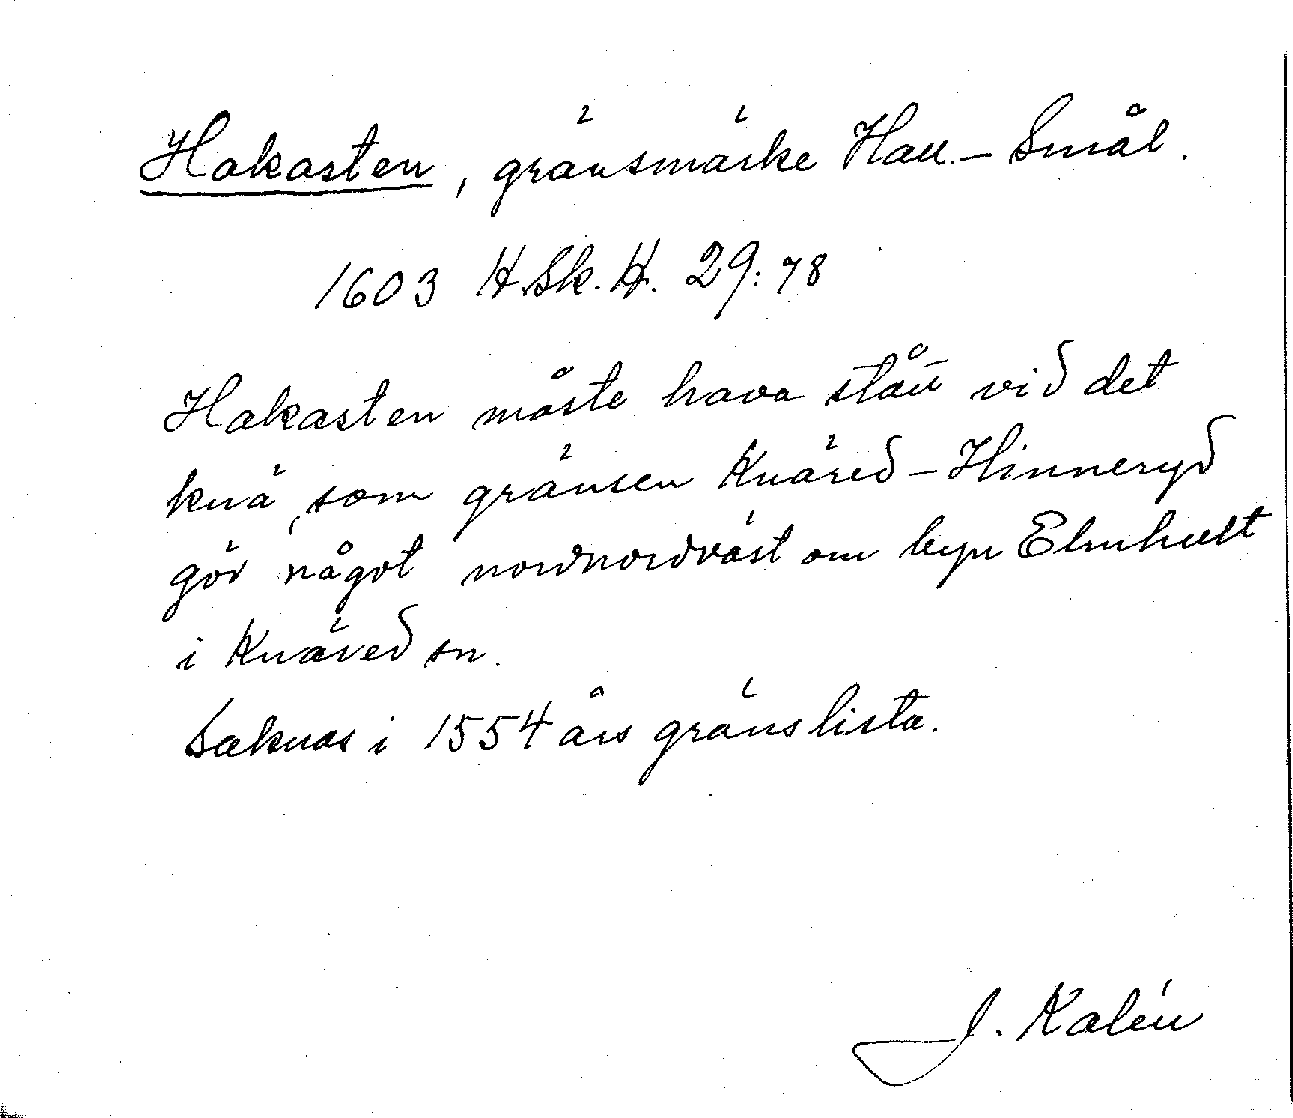 Hakasten, gränsmärke Hall.-Smål.
1603 H.Sk.H. 29:78
Hakasten måste hava stått vid det
knä, som gränsen Knäred-Hinneryd
gör något nordnordväst om byn Elmhult
i Knäred sn.
Saknas i 1554 års gränslista.
J. Kalén